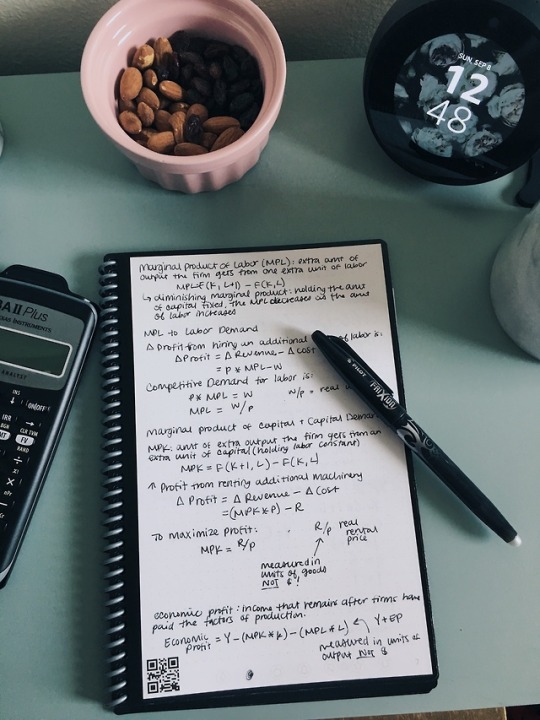 SUN, SEP 8
12
48
BA II Plus
TEXAS INSTRUMENTS
INS
ON/OFF
IRR
CLR TVM
FV
BAND
Marginal product of Labor (MPL): extra amt of
output the firm gets from one extra unit of labor
MPL=F(K, L+1) - F(K,L)
↳ diminishing marginal product: holding the amt
of capital fixed, the MPL decreases as the amt
of labor increases
MPL to Labor Demand
Δ Profit from hiring an additional of labor is:
Δ Profit = Δ Revenue - Δ Cost
= P * MPL - W
Competitive Demand for labor is:
P * MPL = W W/P = real
MPL = W/P
Marginal product of capital + Capital Demand
MPK: amt of extra output the firm gets from an
extra unit of capital (holding labor constant)
MPK = F(K+1, L) - F(K,L)
Profit from renting additional machinery
Δ Profit = Δ Revenue - Δ Cost
=(MPK*P) - R
To maximize profit:
MPK = R/P
R/P real
rental
price
measured in
units of goods
NOT $!
economic profit: income that remains after firms have
paid the factors of production.
Economic profit = Y-(MPK*K)-(MPL*L) Y+EP
measured in units of
output NOT $
PILOT FRIXION